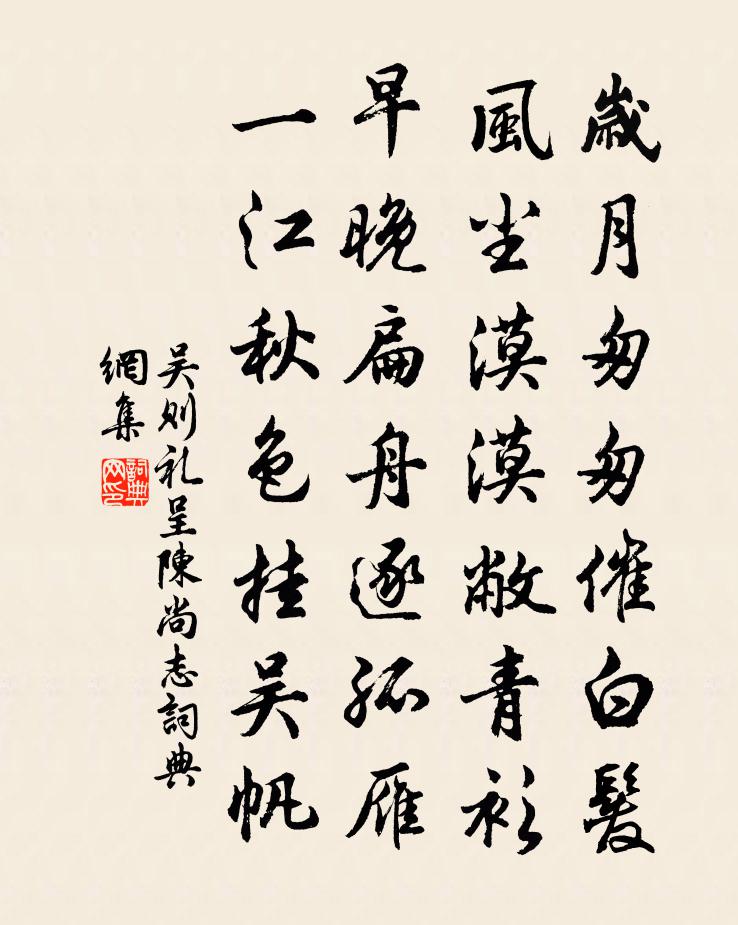 歲月匆匆催白髮
風尘漠漠敝青衫
早晚扁舟逐孤雁
一江秋色挂吴帆
吴则礼呈陳尚志詞典
網集
詞典
网印